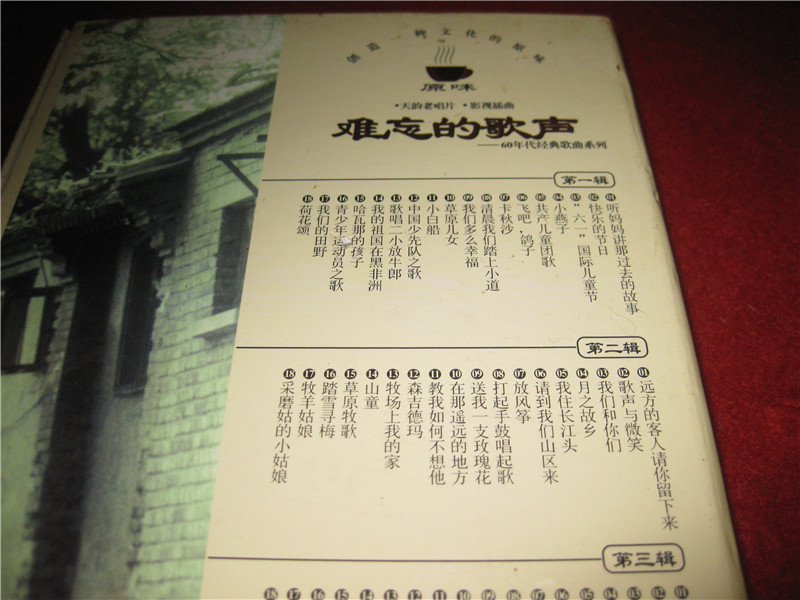 创造一种文化的原味
原味
•天韵老唱片 •影视插曲
难忘的歌声
——60年代经典歌曲系列
第一辑
01 听妈妈讲那过去的故事
02 快乐的节日
03 “六一”国际儿童节
04 小燕子
05 共产儿童团歌
06 飞吧，鸽子
07 卡秋沙
08 清晨我们踏上小道
09 我们多么幸福
10 草原儿女
11 小白船
12 中国少先队之歌
13 歌唱二小放牛郎
14 我的祖国在黑非洲
15 哈瓦那的孩子
16 青少年运动员之歌
17 我们的田野
18 荷花颂
第二辑
01 远方的客人请你留下来
02 歌声与微笑
03 我们和你们
04 月之故乡
05 我住长江头
06 请到我们山区来
07 放风筝
08 打起手鼓唱起歌
09 送我一支玫瑰花
10 在那遥远的地方
11 教我如何不想他
12 森吉德玛
13 牧场上我的家
14 山童
15 草原牧歌
16 踏雪寻梅
17 牧羊姑娘
18 采磨姑的小姑娘
第三辑
01
02
03
04
05
06
07
08
09
10
11
12
13
14
15
16
17
18